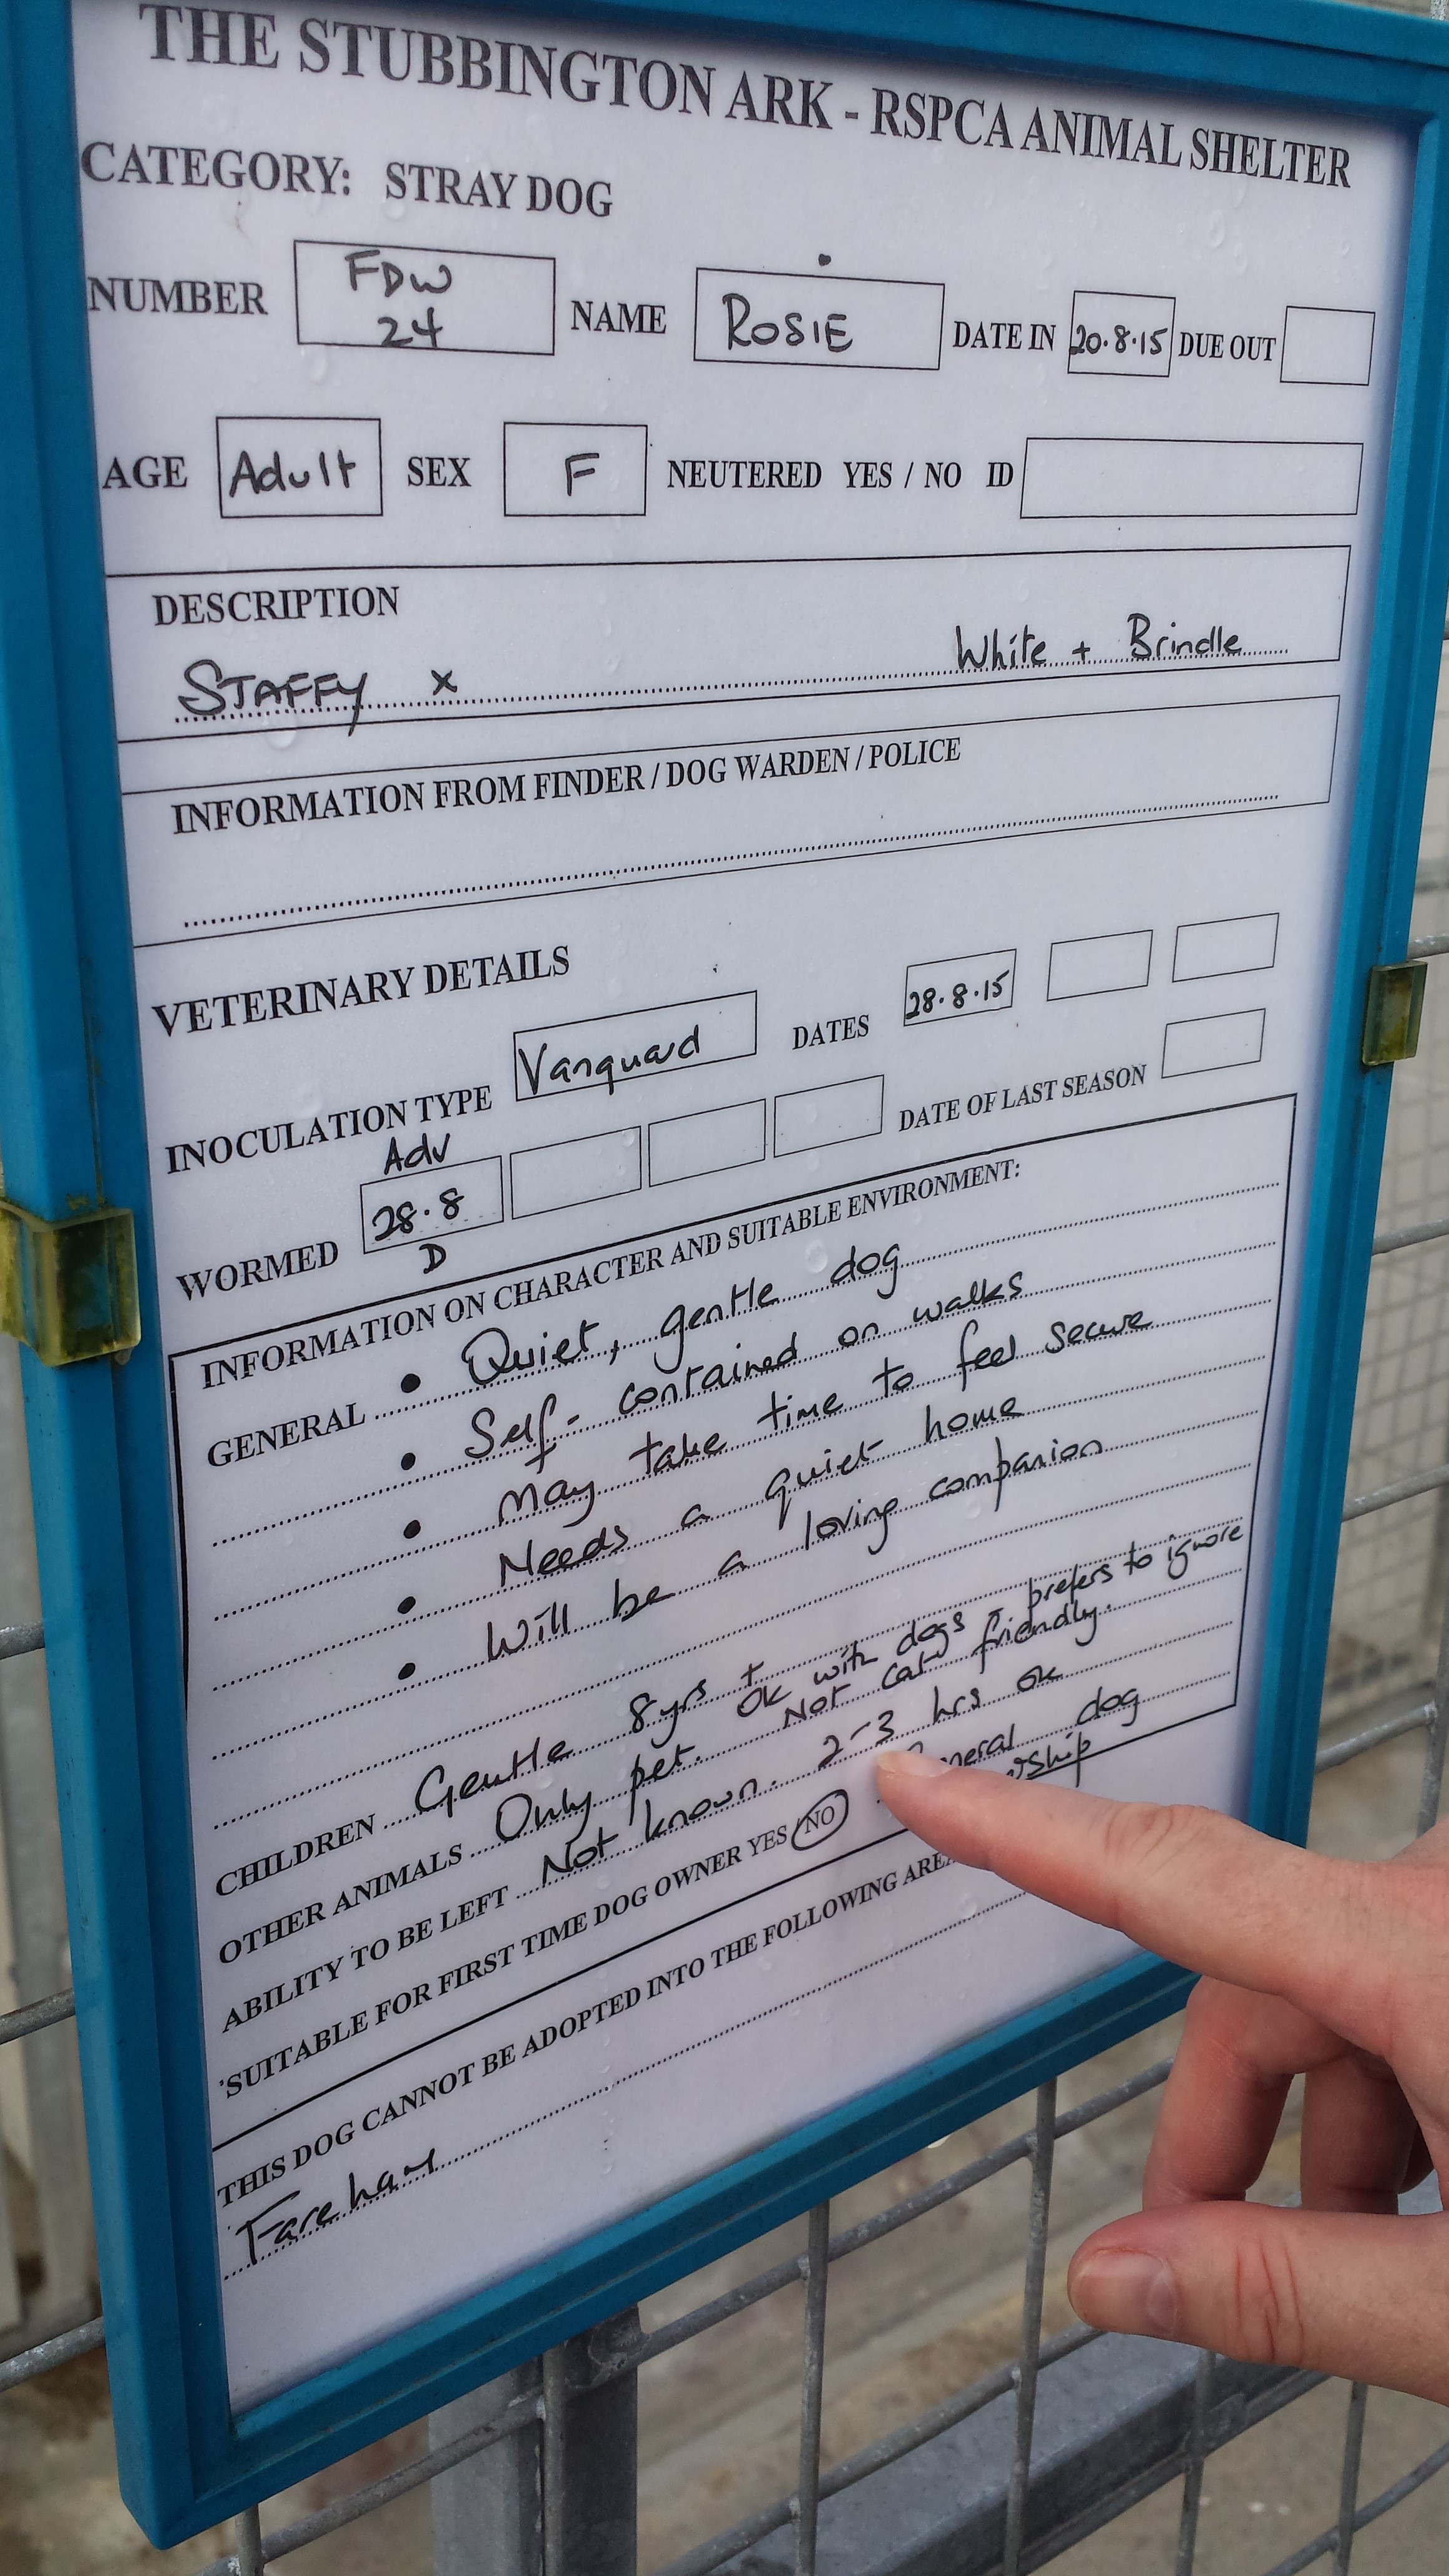 THE STUBBINGTON ARK - RSPCA ANIMAL SHELTER
CATEGORY: STRAY DOG
NUMBER FDW 24 NAME ROSIE DATE IN 20.8.15 DUE OUT
AGE Adult SEX F NEUTERED YES / NO ID
DESCRIPTION
STAFFY x White + Brindle
INFORMATION FROM FINDER / DOG WARDEN / POLICE
VETERINARY DETAILS
INOCULATION TYPE Vanguard DATES 28.8.15
Adv
WORMED 28.8 DATE OF LAST SEASON
D
INFORMATION ON CHARACTER AND SUITABLE ENVIRONMENT:
GENERAL • Quiet, gentle dog
• Self-contained on walks
• May take time to feel secure
• Needs a quiet home
• Will be a loving companion
CHILDREN Gentle 8yrs +
OK with dogs - prefers to ignore
OTHER ANIMALS Only pet. Not cat friendly.
ABILITY TO BE LEFT Not known. 2-3 hrs ok
SUITABLE FOR FIRST TIME DOG OWNER YES / NO dog
THIS DOG CANNOT BE ADOPTED INTO THE FOLLOWING
Fareham